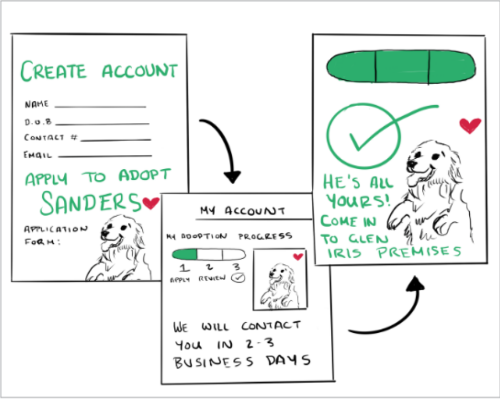 CREATE ACCOUNT
NAME
D.O.B
CONTACT #
EMAIL
APPLY TO ADOPT
SANDERS
APPLICATION
FORM:
MY ACCOUNT
MY ADOPTION PROGRESS
1 2 3
APPLY REVIEW
WE WILL CONTACT
YOU IN 2-3
BUSINESS DAYS
HE'S ALL
YOURS!
COME IN
TO GLEN
IRIS PREMISES